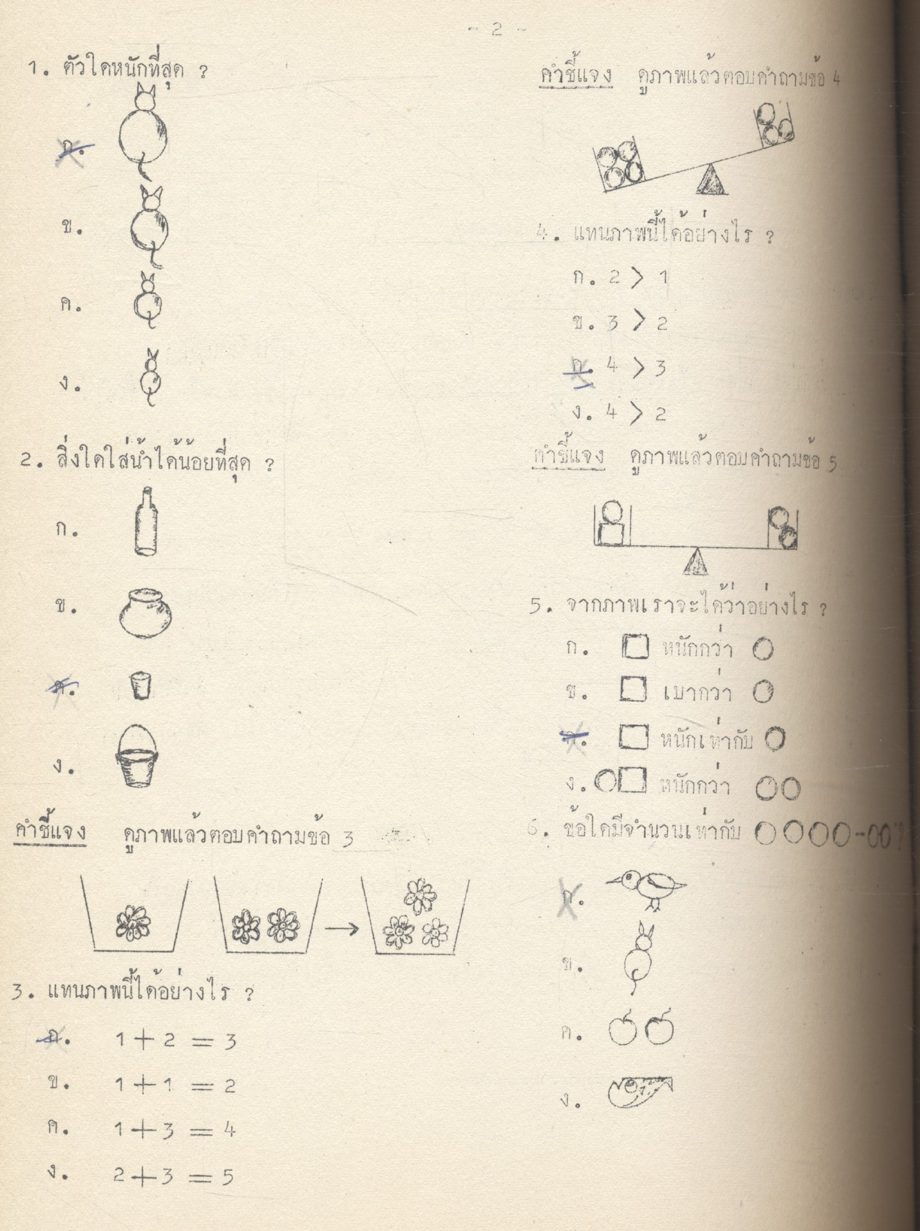 - 2 -
1. ตัวใดหนักที่สุด ?
ก.
ข.
ค.
ง.
2. สิ่งใดใส่น้ำได้น้อยที่สุด ?
ก.
ข.
ค.
ง.
คำชี้แจง ดูภาพแล้วตอบคำถามข้อ 3
3. แทนภาพนี้ได้อย่างไร ?
ก. 1 + 2 = 3
ข. 1 + 1 = 2
ค. 1 + 3 = 4
ง. 2 + 3 = 5
คำชี้แจง ดูภาพแล้วตอบคำถามข้อ 4
4. แทนภาพนี้ได้อย่างไร ?
ก. 2 > 1
ข. 3 > 2
ค. 4 > 3
ง. 4 > 2
คำชี้แจง ดูภาพแล้วตอบคำถามข้อ 5
5. จากภาพเราจะได้ว่าอย่างไร ?
ก. □ หนักกว่า ○
ข. □ เบากว่า ○
ค. □ หนักเท่ากับ ○
ง. ○□ หนักกว่า ○○
6. ข้อใดมีจำนวนเท่ากับ ○○○○-○○
ก.
ข.
ค.
ง.